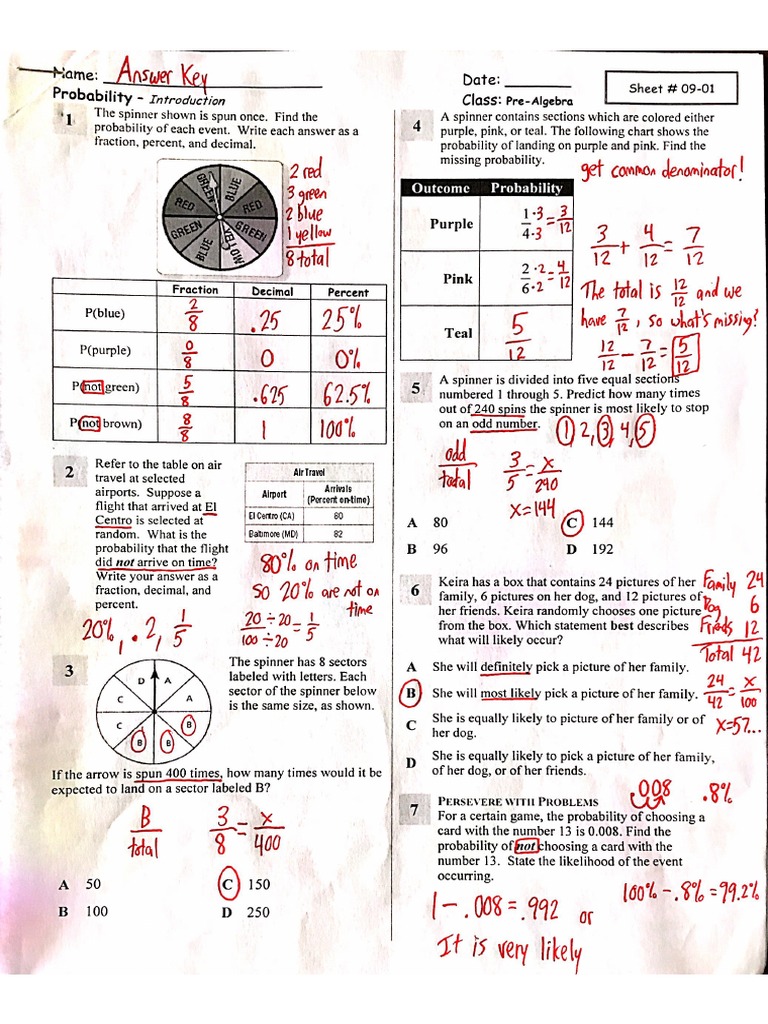 Name: Answer Key
Date:
Sheet # 09-01
Probability – Introduction
Class: Pre-Algebra
1
The spinner shown is spun once. Find the
probability of each event. Write each answer as a
fraction, percent, and decimal.
RED
GREEN
BLUE
RED
GREEN
YELLOW
BLUE
GREEN
2 red
3 green
2 blue
1 yellow
8 total
Fraction Decimal Percent
P(blue) 2/8 .25 25%
P(purple) 0/8 0 0%
P(not green) 5/8 .625 62.5%
P(not brown) 8/8 1 100%
2
Refer to the table on air
travel at selected
airports. Suppose a
flight that arrived at El
Centro is selected at
random. What is the
probability that the flight
did not arrive on time?
Write your answer as a
fraction, decimal, and
percent.
Air Travel
Airport Arrivals (Percent on-time)
El Centro (CA) 80
Baltimore (MD) 82
80% on time
so 20% are not on
time
20 ÷ 20 = 1
100 ÷ 20 5
20%, .2, 1/5
3
The spinner has 8 sectors
labeled with letters. Each
sector of the spinner below
is the same size, as shown.
D A
C A
C B
B B
If the arrow is spun 400 times, how many times would it be
expected to land on a sector labeled B?
B/total 3/8 = x/400
A 50 C 150
B 100 D 250
4
A spinner contains sections which are colored either
purple, pink, or teal. The following chart shows the
probability of landing on purple and pink. Find the
missing probability.
get common denominator!
Outcome Probability
Purple 1·3/4·3 = 3/12
Pink 2·2/6·2 = 4/12
Teal 5/12
3/12 + 4/12 = 7/12
The total is 12/12 and we
have 7/12, so what's missing?
12/12 - 7/12 = 5/12
5
A spinner is divided into five equal sections
numbered 1 through 5. Predict how many times
out of 240 spins the spinner is most likely to stop
on an odd number.
1 2, 3, 4, 5
odd/total 3/5 = x/240
x = 144
A 80 C 144
B 96 D 192
6
Keira has a box that contains 24 pictures of her
family, 6 pictures on her dog, and 12 pictures of
her friends. Keira randomly chooses one picture
from the box. Which statement best describes
what will likely occur?
Family 24
Dog 6
Friends 12
Total 42
A She will definitely pick a picture of her family.
B She will most likely pick a picture of her family.
C She is equally likely to picture of her family or of
her dog.
D She is equally likely to pick a picture of her family,
of her dog, or of her friends.
24/42 = x/100
x=57...
7
PERSEVERE WITH PROBLEMS
For a certain game, the probability of choosing a
card with the number 13 is 0.008. Find the
probability of not choosing a card with the
number 13. State the likelihood of the event
occurring.
.008 .8%
100% - .8% = 99.2%
1 - .008 = .992 or
It is very likely